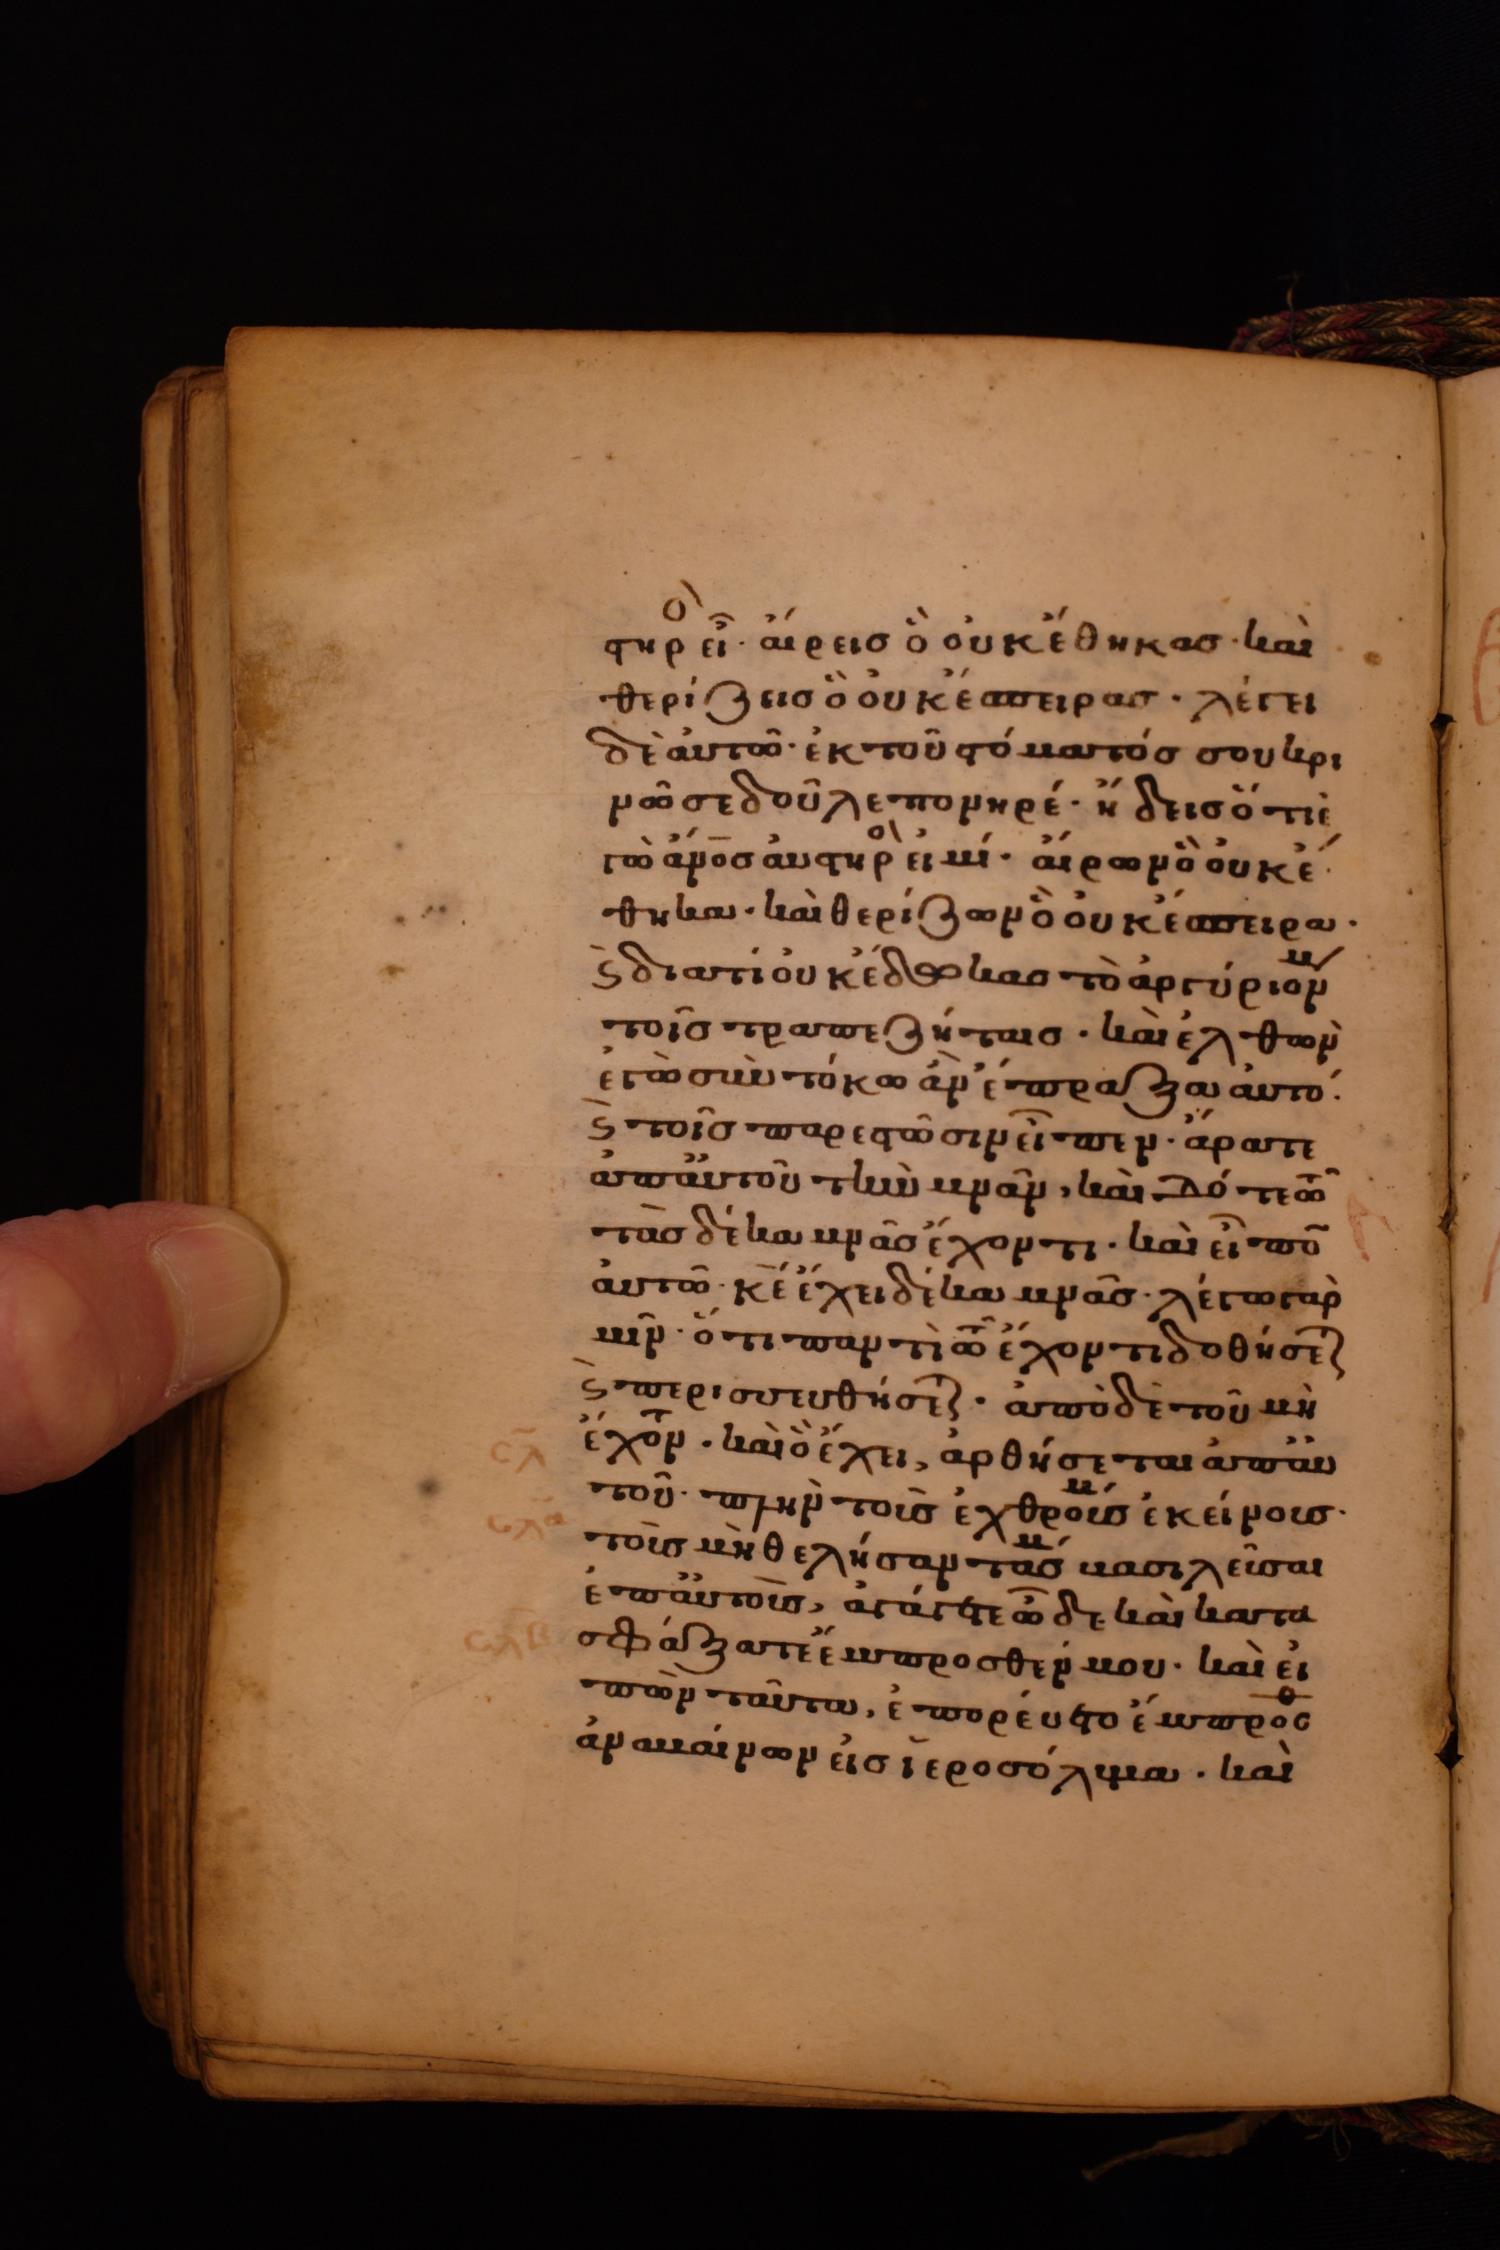 στηρὸ εἶ· αἴρεις ὃ οὐκ ἔθηκας· καὶ
θερίζεις ὃ οὐκ ἔσπειρας· λέγει
δὲ αὐτῶ· ἐκ τοῦ στόματός σου κρι
νῶ σε δοῦλε πονηρέ· ἤδεις ὅτι ἐ
γὼ ἄν̅ο̅ς αὐστηρὸ εἰμί· αἴρων ὃ οὐκ ἔ
θηκα· καὶ θερίζων ὃ οὐκ ἔσπειρα·
ϛ̀ διατί οὐκ ἔδωκας τὸ ἀργύριόν μ
τοῖς τραπεζήταις· καὶ ἐλθὼν
ἐγὼ σὺν τόκω ἂν ἔπραξα αὐτό·
ϛ̀ τοῖς παρεστῶσιν εἶπεν· ἄρατε
ἀπ᾽ αὐτοῦ τὴν μνᾶν, καὶ δότε τῶ
τὰς δέκα μνᾶς ἔχοντι· καὶ εἶπο̅
αὐτῶ· κ̅ε̅ ἔχει δέκα μνᾶς· λέγω γὰρ
ὑμῖν· ὅτι παντὶ τῶ ἔχοντι δοθήσετ
ϛ̀ περισσευθήσετ· ἀπὸ δὲ τοῦ μὴ
ἔχοντ· καὶ ὃ ἔχει, ἀρθήσεται ἀπ᾽ αὐ
τοῦ· πλὴν τοὺς ἐχθρούς μ ἐκείνους·
τοὺς μὴ θελήσαντάς μ βασιλεῦσαι
ἐπ᾽ αὐτοὺς, ἀγάγετε ὧδε καὶ κατα
σφάξατε ἔμπροσθέν μου· καὶ εἰ
πὼν ταῦτα, ἐπορεύετο ἔμπροσθ
ἀναβαίνων εἰς ἱεροσόλυμα· καὶ
σ̅λ̅
σ̅λ̅α̅
σ̅λ̅β̅